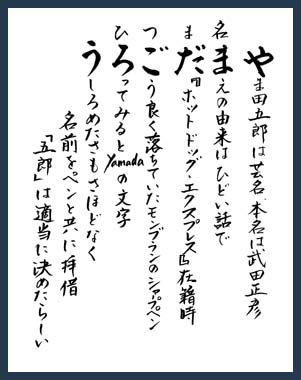 やま田五郎は芸名 本名は武田正彦
名まえの由来はひどい話で
まだ『ホットドッグ・エクスプレス』在籍時
つごう良く落ちていたモンブランのシャープペン
ひろってみるとYamadaの文字
うしろめたさもさほどなく
名前をペンと共に拝借
「五郎」は適当に決めたらしい